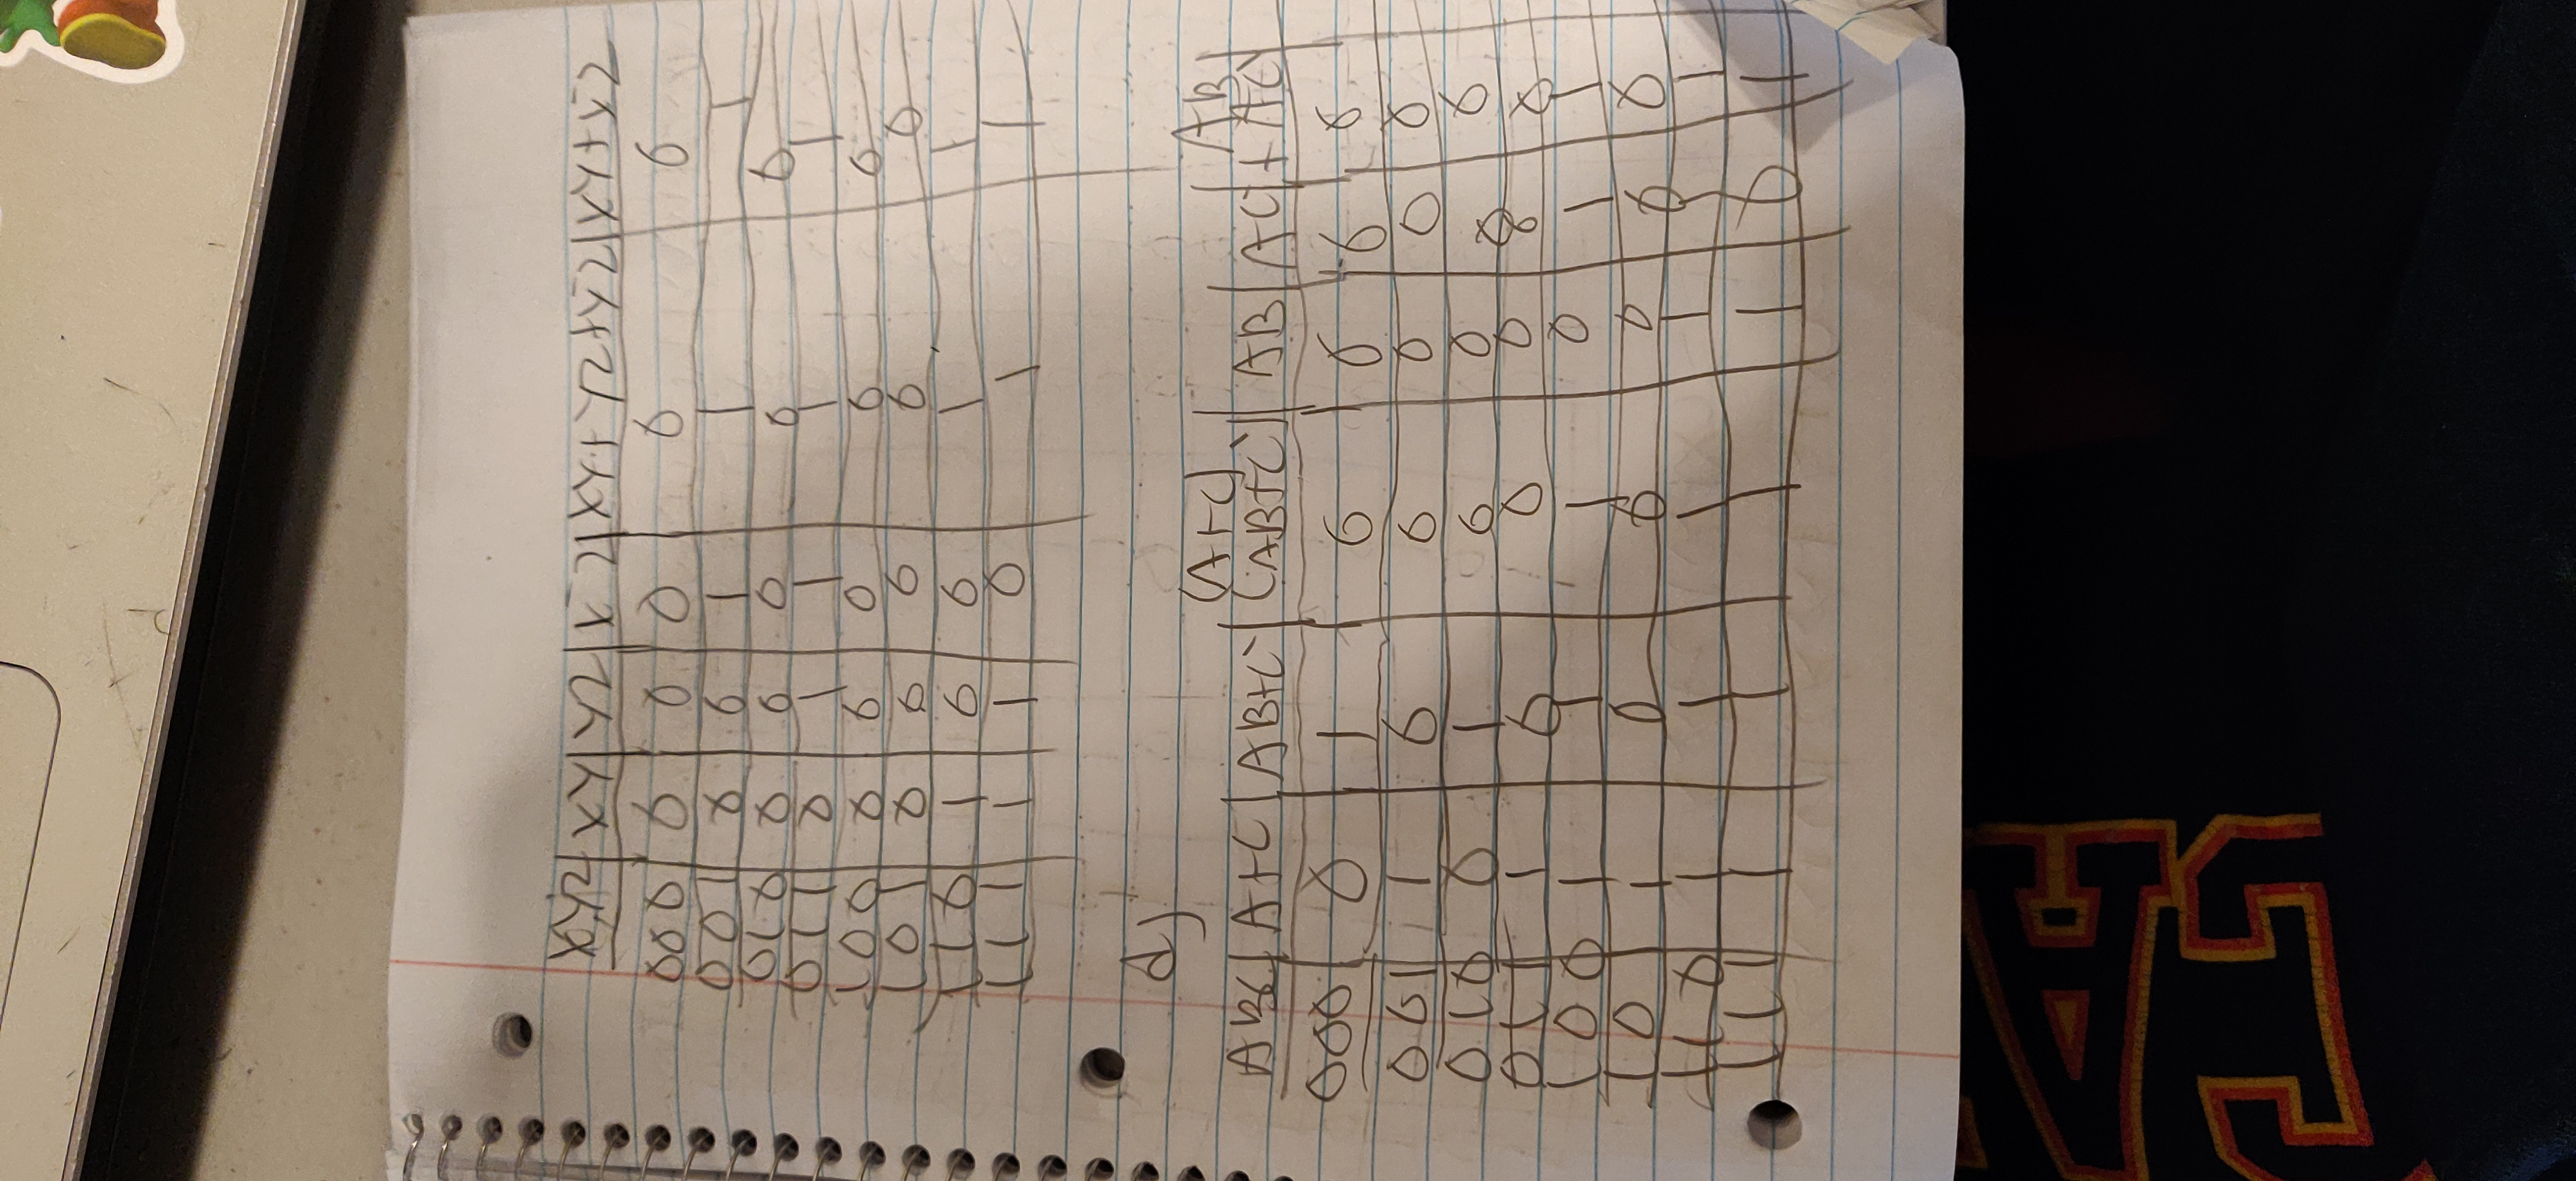 XYZ XY YZ X'Z XY+YZ+X'Z XY+X'Z
000 0 0 0 0 0
001 0 0 1 1 1
010 0 0 0 0 0
011 0 1 1 1 1
100 0 0 0 0 0
101 0 0 0 0 0
110 1 0 0 1 1
111 1 1 0 1 1
d)
(A+C) AB
ABC A+C AB+C' (AB+C') AB AC' + AC'
000 0 1 0 0 0 0
001 1 0 0 0 0 0
010 0 1 0 0 0 0
011 1 0 0 0 0 0
100 1 1 1 0 1 1
10 1 0 0 0 0 0
110 1 1 1 1 1 1
111 1 1 1 1 0 1